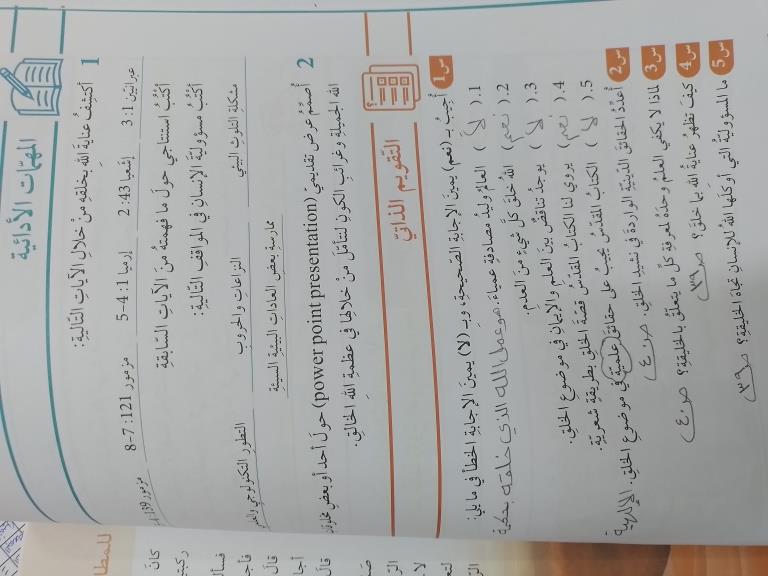 المهمّات الأدائية
1 أكتشِفُ عنايةَ اللهِ بخلقهِ منْ خلالِ الآياتِ التّاليةِ:
عبرانيّين 1: 3
إشعيا 43: 2
إرميا 1: 4-5
مزمور 121: 7-8
مزمور 139:
أكتُبُ استنتاجي حولَ ما فهمتهُ منَ الآياتِ السّابقةِ
أكتُبُ مسؤوليّةَ الإنسانِ في المواقفِ التّاليةِ:
مشكلةِ التلوثِ البيئي
النزاعاتِ والحروبِ
التطورِ التكنولوجي
ممارسةِ بعضِ العاداتِ البيئيةِ السيئة
2 أُصمِّمُ عرضَ تقديميّ (power point presentation) حولَ أحدِ أو بعضِ
اللهِ الجميلةِ وغرائبِ الكونِ لنتأمّلَ منْ خلالها في عظمةِ اللهِ الخالقِ.
التقويم الذاتيّ
س1 أُجيبُ بـ (نعم) يمينَ الإجابةِ الصّحيحةِ، وبـ (لا) يمينَ الإجابةِ الخطأ في ما يلي:
1. ( لا ) العالمُ وليدُ مصادفةٍ عمياءَ. هو عمل الله الذي خلقه بحكمة
2. ( نعم ) اللهُ خلقَ كلَّ شيءٍ منَ العدمِ.
3. ( لا ) يوجدُ تناقضٌ بينَ العلمِ والإيمانِ في موضوعِ الخلقِ.
4. ( نعم ) يروي لنا الكتابُ المقدّسُ قصّةَ الخلقِ بطريقةٍ شعريّةٍ.
5. ( لا ) الكتابُ المقدّسُ يجيبُ على حقائقَ علميّةٍ في موضوعِ الخلقِ. الإلهية
س2 أُعدِّدُ الحقائقَ الدّينيّةَ الواردةَ في نشيدِ الخلقِ. ص٤٠
س3 لماذا لا يكفي العلمُ وحدَهُ لمعرفةِ كلِّ ما يتعلّقُ بالخليقةِ؟ ص٤٠
س4 كيفَ تظهرُ عنايةُ اللهِ بما خلقَ؟ ص٣٩
س5 ما المسؤوليّةُ التي أوكلَها اللهُ للإنسانِ تجاهَ الخليقةِ؟ ص٣٩
للمطا
كانَ
قالَ